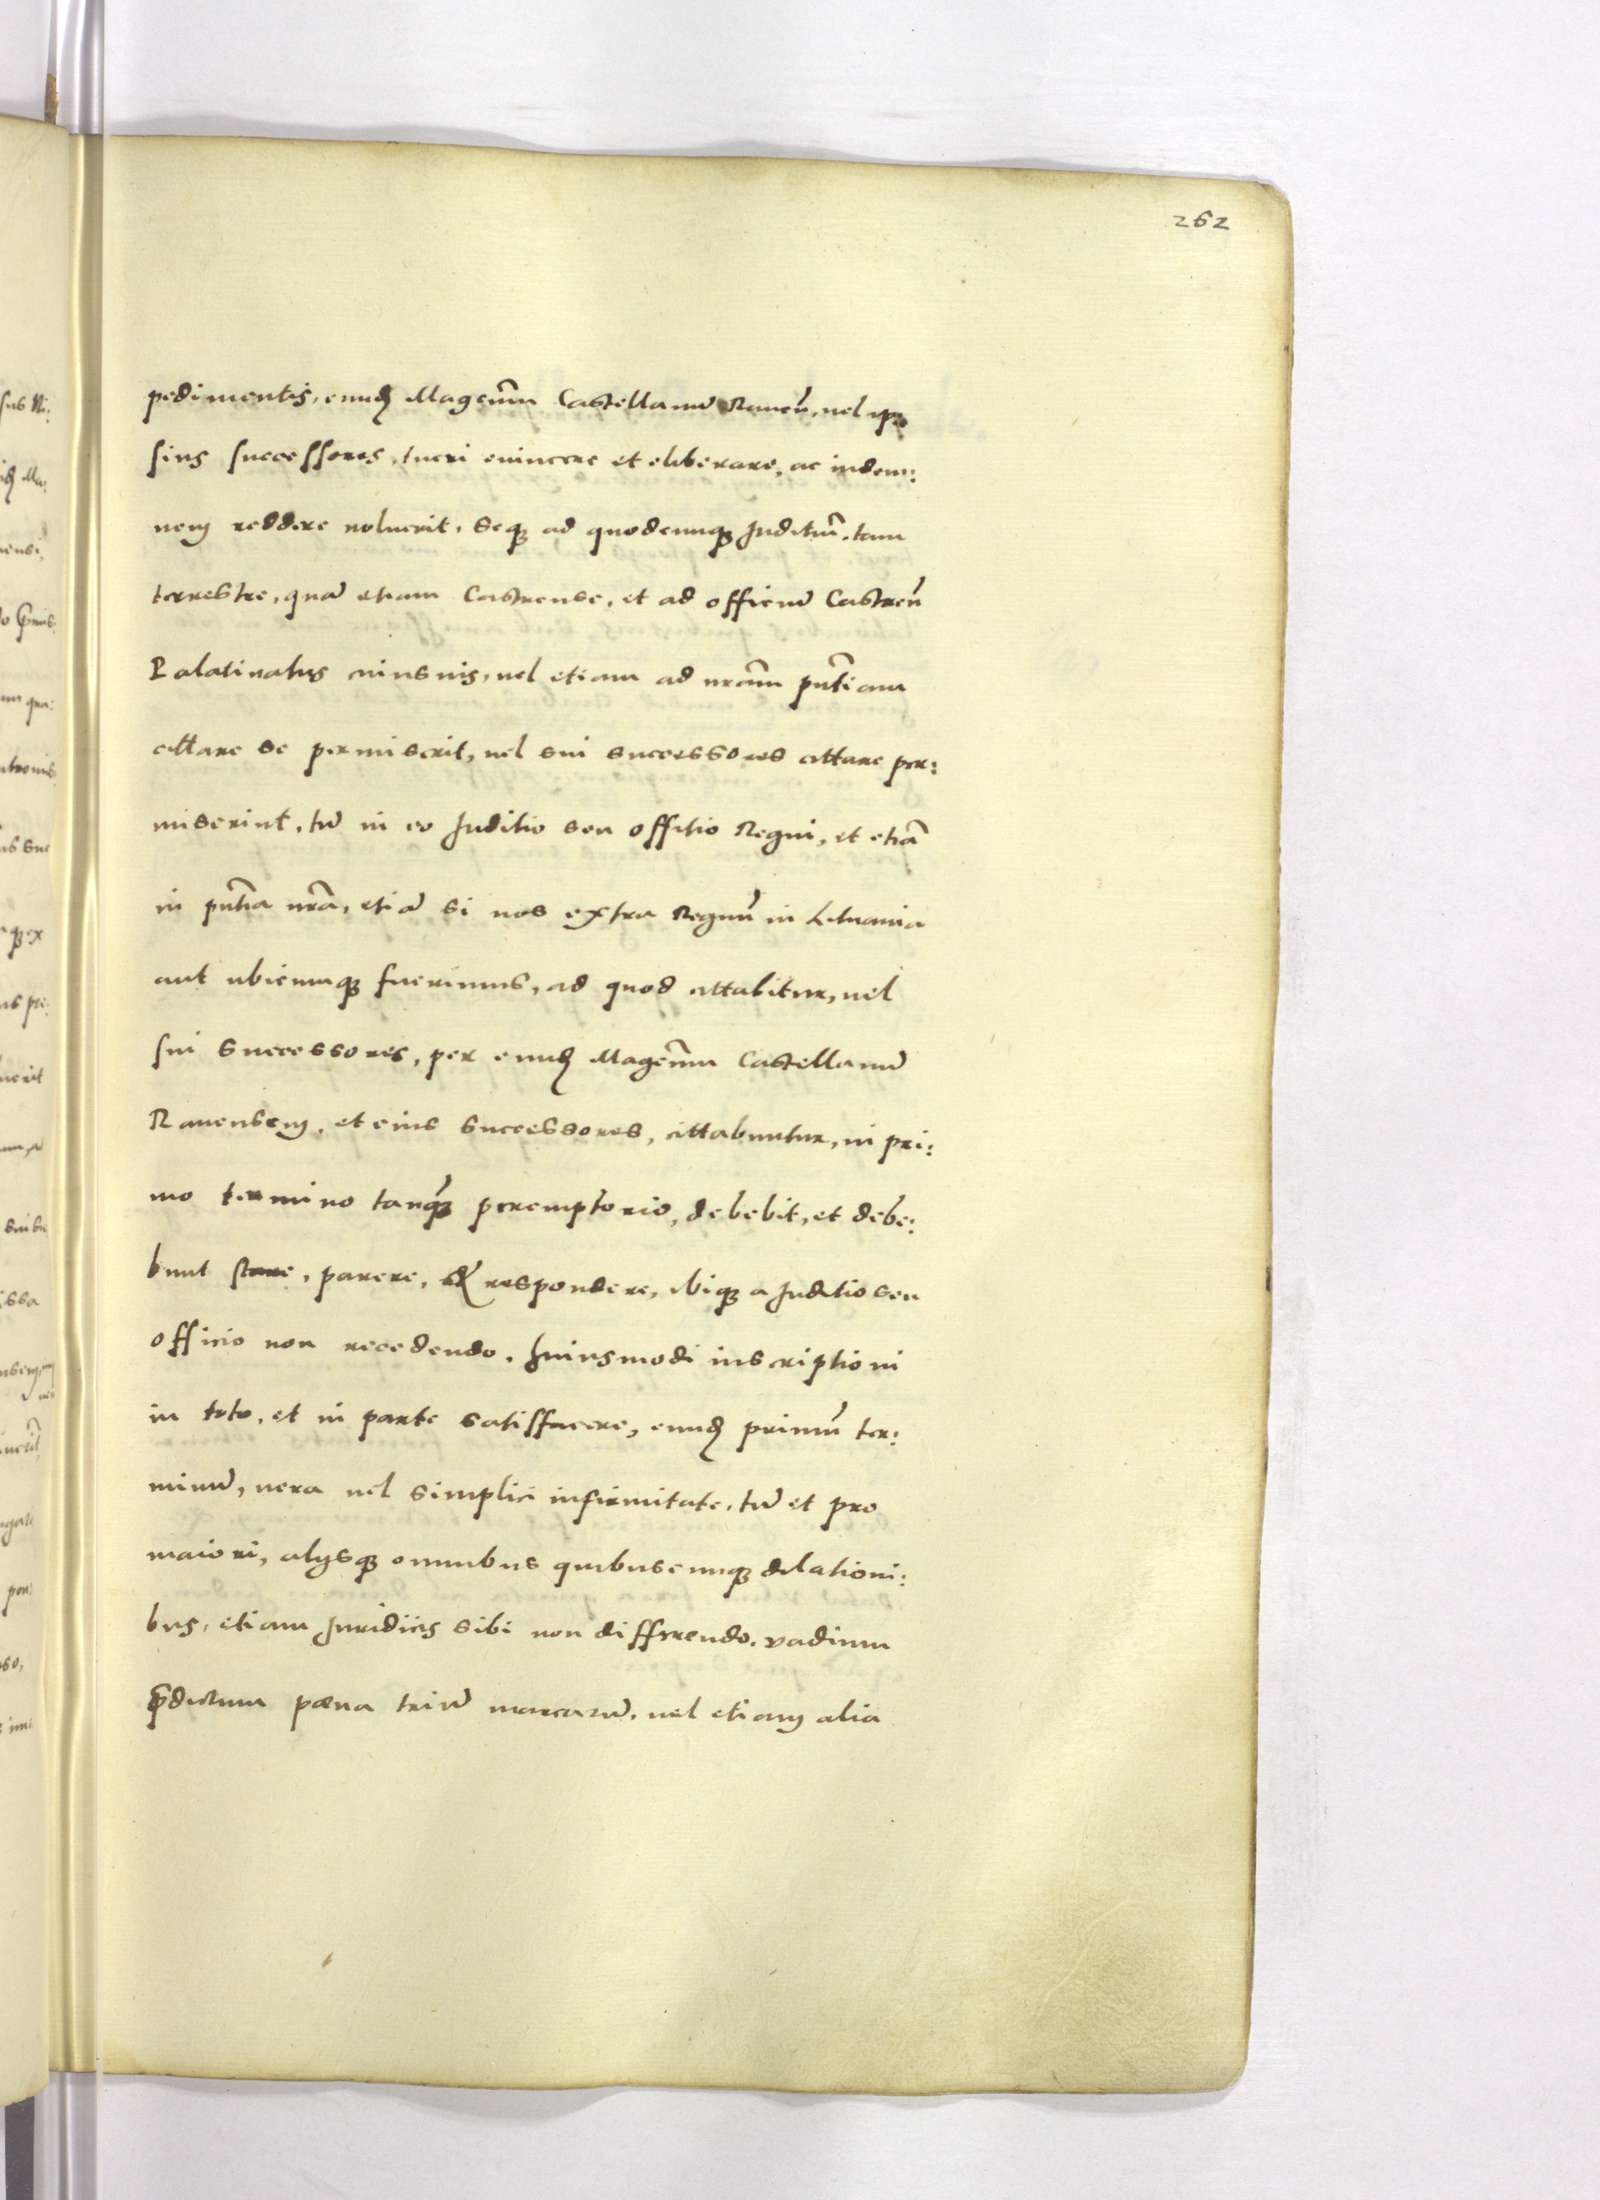 262
pedimentis, eundē Magcūm Castellanū Raueñ, uel ip
sius successores, tueri euincere et eliberare, ac indem:
nem reddere noluerit, Seqꝫ ad quodcunqꝫ Juditiū, tam
terrestre, quā etiam Castrense, et ad officiū Castreñ
Palatinatus cuiusuis, uel etiam ad nrām pntiam
cittare se permiserit, uel sui successores cittare per:
miserint, tū in eo Juditio seu offitio Regni, et etiā
in pntia nrā, etiā si nos extra Regnū in Lituania
aut ubicunqꝫ fuerimus, ad quod cittabitur, uel
sui successores, per eundē Magcūm Castellanū
Rauensem, et eius successores, cittabuntur, in pri:
mo termino tanqꝫ peremptorio, debebit, et debe:
bunt stare, parere, & respondere, ibiqꝫ a Juditio seu
officio non recedendo, huiusmodi inscriptioni
in toto, et in parte satisfacere, eundē primū ter:
minū, uera uel simplici infirmitate, tū et pro
maiori, alijsqꝫ omnibus quibuscunqꝫ dilationi:
bus, etiam Juridicis sibi non differendo, vadium
p̄dictum pæna triū marcarū, uel etiam alia